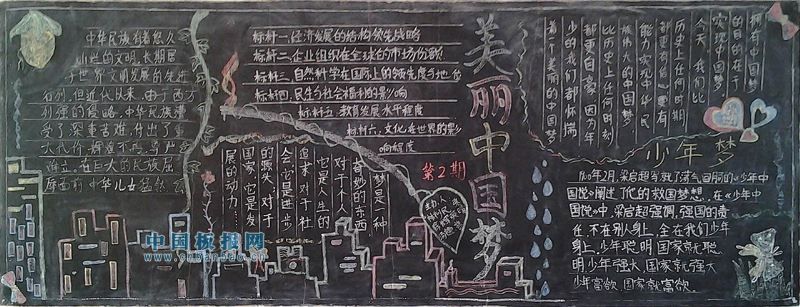 中华民族有着悠久
灿烂的文明,长期居
于世界文明发展的先进
行列,但近代以来,由于西方
列强的侵略,中华民族遭
受了深重苦难,付出了重
大代价,
在巨大的民族屈
中华儿女
标杆一、经济发展的结构领先战略
标杆二、企业组织在全球的市场份额
标杆三、自然科学在国际上的领先度
标杆四、民生与社会福利的影响
标杆五、教育发展水平程度
标杆六、文化在世界的影
响程度
梦是一种
奇妙的东西
对于个人
它是人生的
追求,对于社
会,它是进步
的源头,对于
国家,它是发
展的动力…
第2期
美丽中国梦
拥有中国梦
的目的在于
实现中国梦
今天,我们比
历史上任何时期
都更有信心更有
能力实现中华民
族伟大的中国梦
比历史上任何时刻
都更自豪,因为年
少的我们都怀揣
着个美丽的中国梦
少年梦
1900年2月,梁启超写就了荡气回肠的《少年中
国说》阐述了他的救国梦想,在《少年中
国说》中,梁启超强调,强国的责
任,不在别人身上,全在我们少年
身上,少年聪明,国家就聪
明,少年强大,国家就强大
少年富欲,国家就富欲
中国板报网